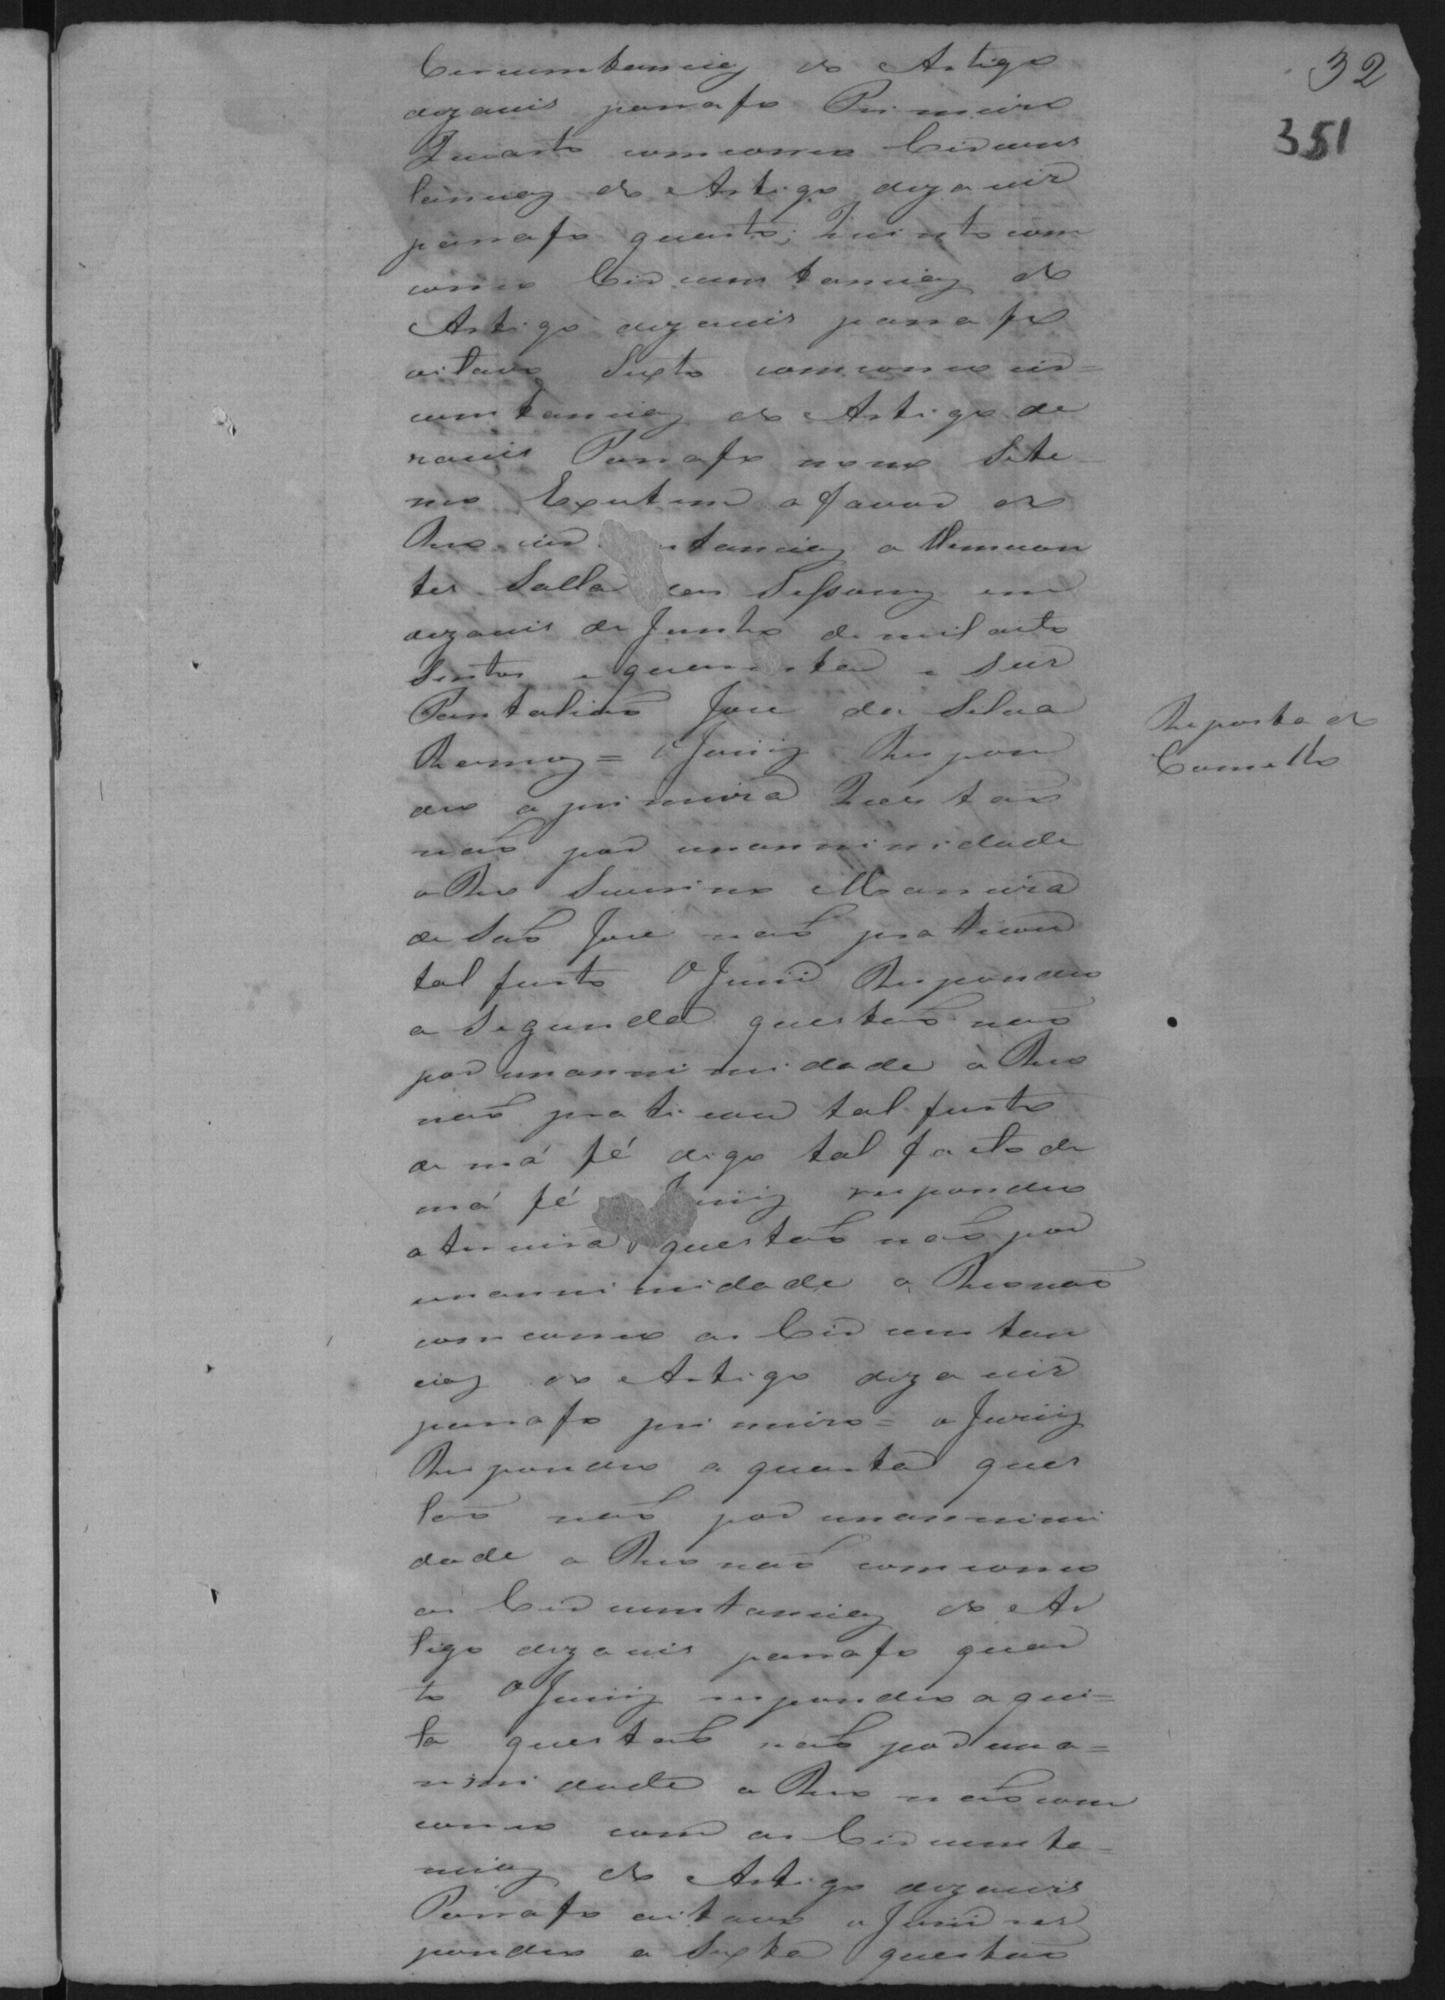 32
351
Circumstancias do Artigo
dezaceis parrafo Primeiro
Quarto comcorreo Circuns
tancias do Artigo dezaceis
parrafo quarto; Quinto com
correo Circumstancias do
Artigo dezaceis parrafo
oitavo Sexto comcorreo cir=
cumstancias do Artigo de
zaceis Parrafo nono Sete
mo Existem a favor do
Reo cir tancias atenuan
tes Salla das Sessoens em
dezaceis de Junho de mil oito
Sentos e quarenta e Seis
Pantalião Jose da Silva
Ramos = O Juriy Respon
deo a primeira Questão
não por unannimidade
o Reo Severino Moreira
de São Jose não praticou
tal furto O Juriy Respondeo
a Segunda questão não
por unannimidade o Reo
não praticou tal furto
de má fé digo tal facto de
má fé Juriy respondeo
a terceira questão não por
unannimidade o Reo não
comcorreo as Circumstan
cias do Artigo dezaceis
parrafo primeiro = o Juriy
Respondeo a quarta ques
tão não por unannimi
dade o Reo não comcorreo
as Circumstancias do Ar
tigo dezaceis parrafo quar
to O Juriy respondeo a quin=
ta questão não por una=
nimidade o Reo não com
correo com as Circumsta
ncias do Artigo dezaceis
Parrafo oitavo o Juriy res
pondeo a Sexta questão
Reposta do
Concelho